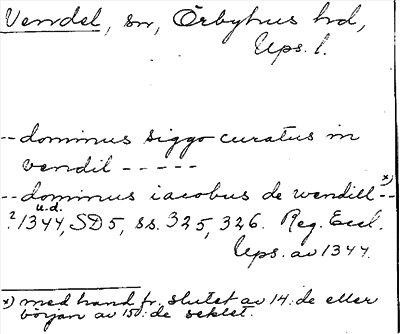 Vendel, sn, Örbyhus hd,
Ups. l.
-- dominus siggo curatus in
vendil -----
-- dominus iacobus de wendill x) --
u.d.
? 1344, SD 5, ss. 325, 326. Reg. Eccl.
Ups. av 1344.
x) med hand fr. slutet av 14:de eller
början av 15:de seklet.